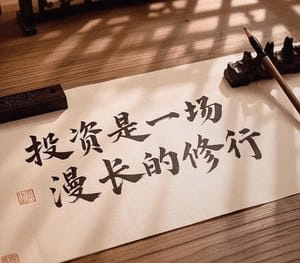 投资是一场
漫长的修行